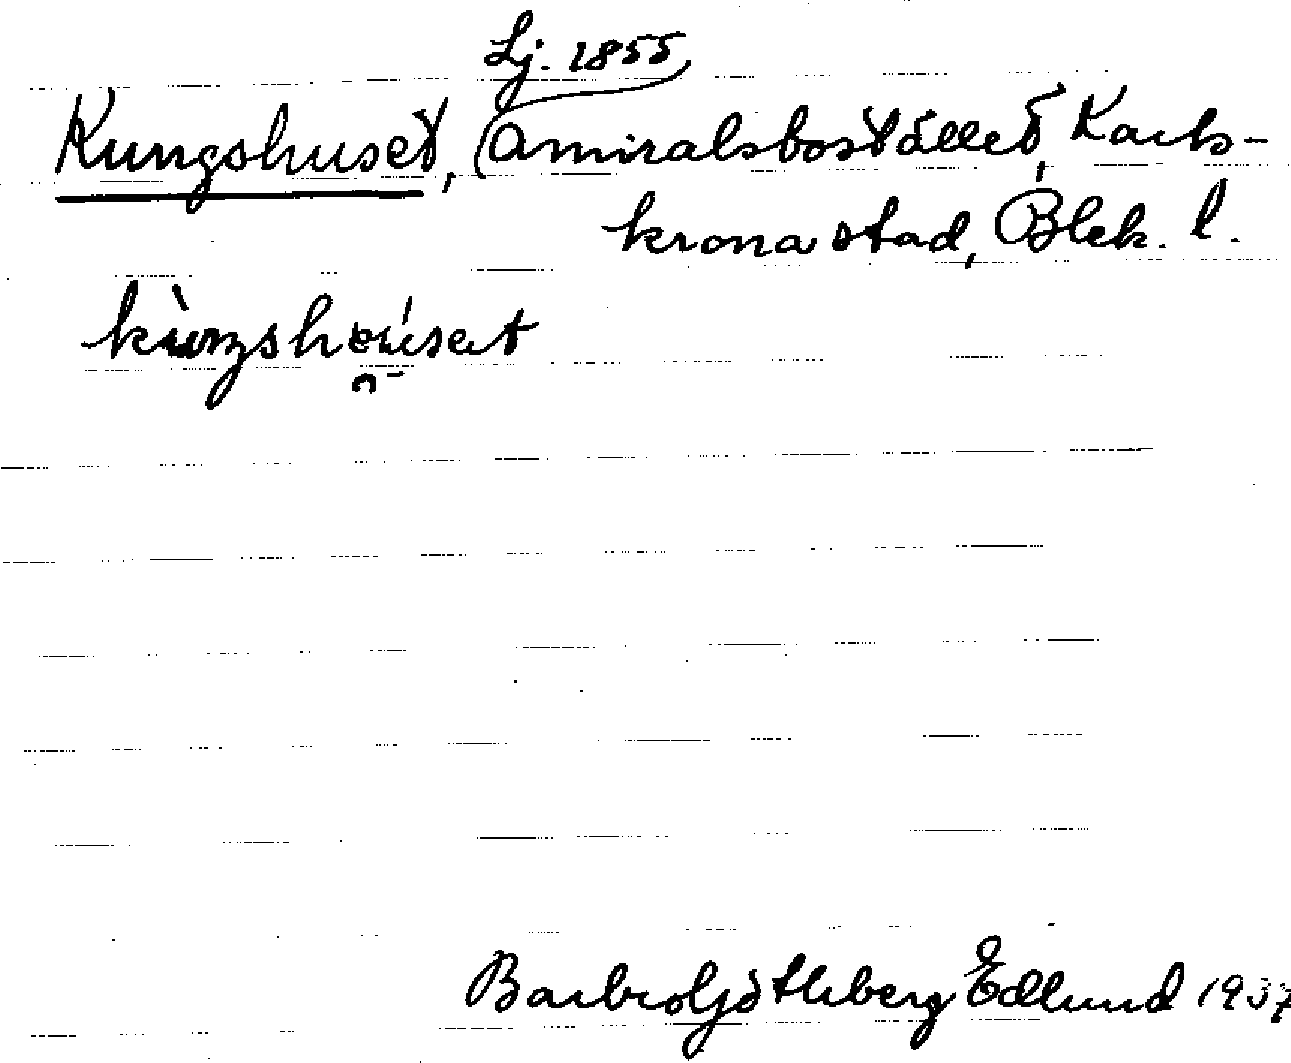 Lj. 1855
Kungshuset, Amiralsbostället, Karls-
krona stad, Blek. l.
Barbro Göthberg Edlund 1937